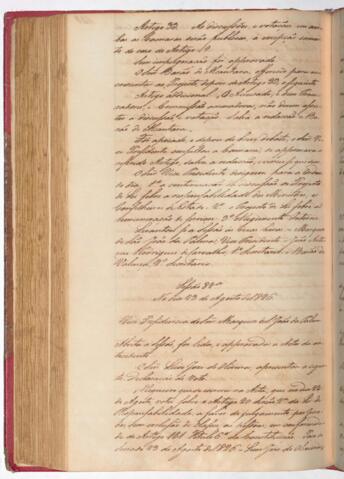 Artigo 32. As discussões, e votações em am-
bas as Camaras serão publicas, á excepção somen-
te do caso do Artigo 19.
Sem impugnação foi approvado.
O Snr Barão de Alcantara, offereceo para ac-
crescentar ao Projecto depois do Artigo 32, o seguinte
Artigo addicional. O Accusado, e seus
e Commissão accusadora, não devem assis-
tir á discussão, e votação. Salva a redacção. = Ba-
rão de Alcantara.
Foi apoiado, e depois de breve debate, o Snr Vi-
ce Presidente consultou a Camara, se approvava o
Artigo, salva a redacção,
O Snr Vice Presidente designou para a Ordem
do dia, 1º a continuação da discussão do Projecto
de Lei sobre a responsabilidade dos Ministros, e
Conselheiros de Estado. 2º o Projecto de Lei sobre a
3º Regimento Interno.
Levantou-se a Sessão ás horas = Marquez
de São João da Palma, Vice Presidente = João Anto-
nio Rodrigues de Carvalho, 1º Secretario = Barão de
Valença, 2º Secretario.
Sessão 84ª
No dia 23 de Agosto de 1826
Vice Presidencia do Snr Marquez de S. João da Palma
Aberta a Sessão, foi lida, e approvada a Acta da an-
tecedente.
O Snr Luiz José de Oliveira, apresentou a seguin-
te Declaração de voto.
Requeiro que se na Acta, que no dia 22
de Agosto, votei sobre o Artigo 20 da Lei de
Responsabilidade, a favor do julgamento por Jura-
dos, sem exclusão de classe, ou pessoa, em conformida-
de do Artigo 151 Titulo 6º da Constituição. Paço do
Senado 23 de Agosto de 1826 = Luiz José de Oliveira